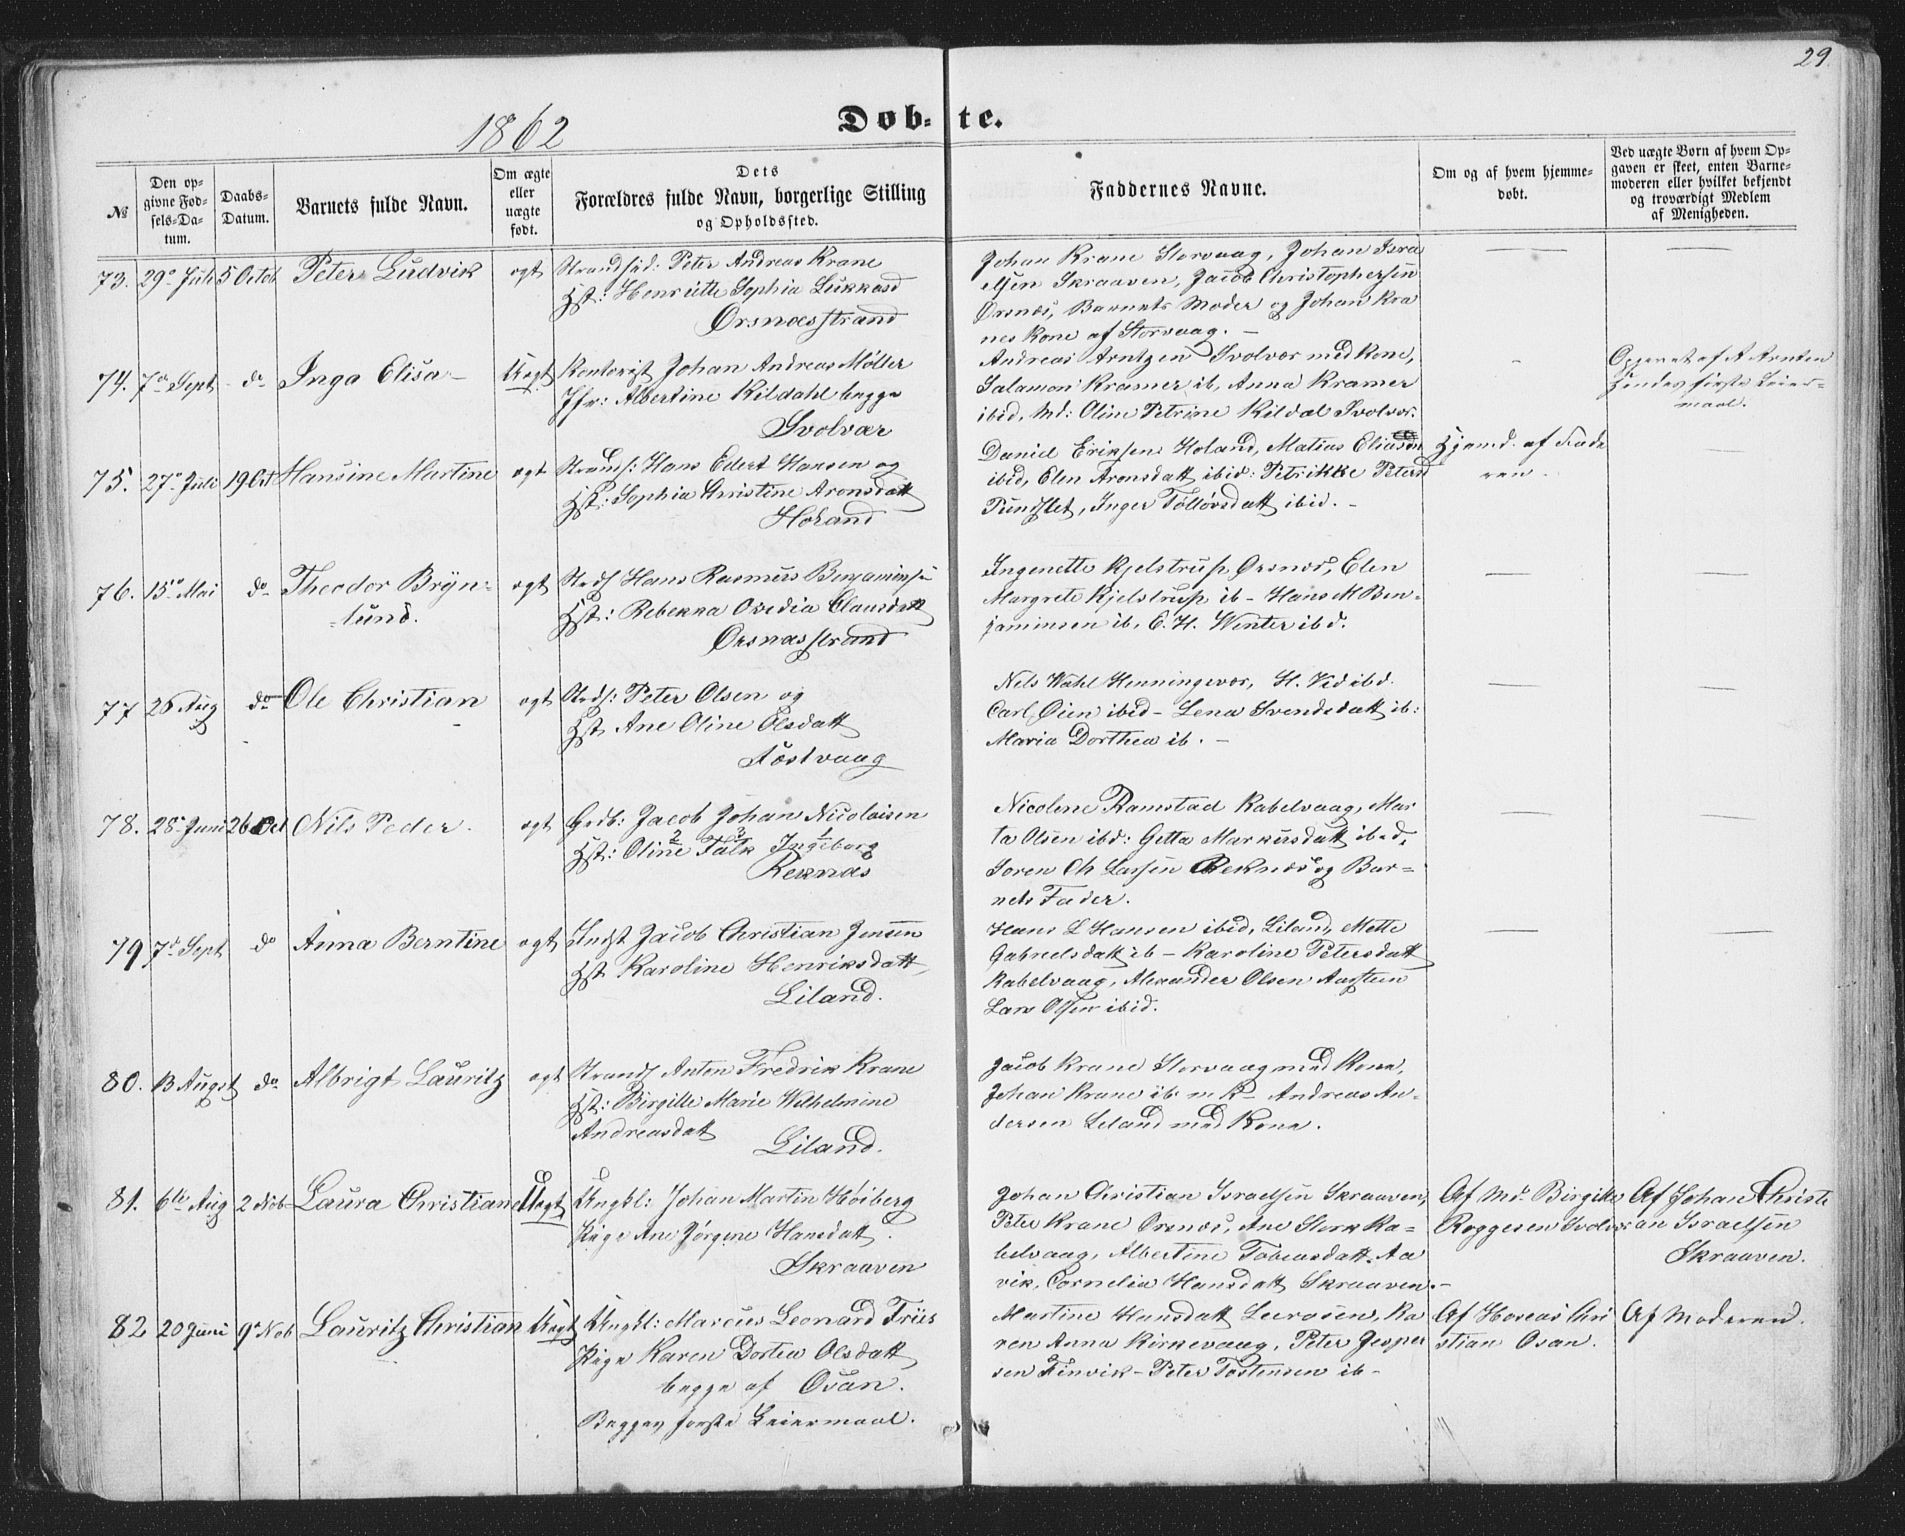 29
1862
Døb- te.
№
Den op-
givne Fød-
sels-Da-
tum.
Daabs-
Datum.
Barnets fulde Navn.
Om ægte
eller
uægte
født.
Dets
Forældres fulde Navn, borgerlige Stilling
og Opholdssted.
Faddernes Navne.
Om og af hvem hjemme-
døbt.
Ved uægte Børn af hvem Op-
gaven er skeet, enten Barne-
moderen eller hvilket bekjendt
og troværdigt Medlem
af Menigheden.
73. 29 Juli 5 Octob Peter Ludvik ægt
Peter Andreas Krane
Hst: Henriette Sophia Lukkasd
Ørsnæsstrand
Johan Krane Storvaag, Johan Isra
elsen Skraaven, Jacob Christophersen
Ørsnæs, Barnets Moder og Johan Kra
nes Kone af Storvaag. –
74. 7de Sept do Inga Elisa – Uægt
Kontorist Johan Andreas Møller
Jfr: Albertine Kildahl begge
Svolvær
Andreas Arntzen Svolvær med Kone,
Salamon Kramer ib, Anna Kramer
ibid, Md: Oline Petrine Kildal Svolvær.
Opgevet af A Arntzen
Hendes første Leier-
maal.
75. 27 Juli 19 Oct Hansine Martine ægt
Strands: Hans Edert Hansen og
Hst: Sophia Christine Aronsdatt
Holand
Daniel Eriksen Holand, Matias Eliasen
ibid, Elen Aronsdatt ibid: Petrikke Petersd
Pundslet, Inger Tølløvsdatt ibid. –
Hjemd. af Fade
ren.
76. 15 Mai do Theodor Bryn-
lund. ægt
Hans Rasmus Benjaminsen
Hst: Rebekka Ovedia Clausdatt
Ørsnæsstrand
Ingenette Kjelstrup Ørsnæs, Elen
Margrete Kjelstrup ib – Hans M Ben-
jaminsen ib, E. H. Winter ibd.
77 26 Aug do Ole Christian ægt
Peter Olsen og
Hst. Ane Oline Olsdatt
Føstvaag
Nels Wahl Henningsvær, H. Ved ibd.
Carl Øien ibid – Lena Svendsdatt ib:
Maria Dorthea ib. –
78. 28 Juni 26 Oct Nils Peder. ægt
Grdb: Jacob Johan Nicolaisen
2 3 1
Hst: Oline Falk Ingeborg
Reknæs
Nicoline Ramstad Kabelvaag, Mar
ta Olsen ibd: Getta Markusdatt ibid,
Søren Ch Larsen Reknæs og Bar=
nets Fader.
79 7de Sept do Anna Berntine ægt
Indst Jacob Christian Jensen
Hst Karoline Henriksdatt
Liland.
Hans L Hansen ibid, Liland, Mette
Gabrelsdatt ib – Karoline Petersdatt
Kabelvaag, Alexander Olsen Aastein
Lars Olsen ibid.
80. 13 Augst do Albrigt Lauritz ægt
Strands Anton Fredrik Krane
Hst: Birgitte Marie Wilhelmine
Andreasdatt
Liland.
Jacob Krane Storvaag med Kone,
Johan Krane ib. m. K – Andreas An-
dersen Leland med Kone.
81. 6te Aug 2 Nob Laura Christiane Uægt
Ungkl: Johan Martin Høiberg
Pige Ane Jørgine Hansdatt.
Skraaven
Johan Christian Israelsen Skraaven,
Peter Krane Ørsnæs, Ane Stork Ka-
belvaag, Albertine Tobiasdatt. Aa
vik, Cornelia Hansdatt Skraaven. –
Af Md. Birgitte
Roggesen Svolvær
Af Johan Christi
an Israelsen
Skraaven.
82 20 Juni 9 Nob Lauritz Christian Uægt
Ungkl: Marcus Leonard Friis
Pige Karen Dortea Olsdatt,
begge af Osan.
Begges første Leiermaal.
Martine Hansdatt Leerosen, Ka
ren Anna Kirkevaag, Peter Jesper
sen Finvik – Peter Tostensen ib –
Af Hoseas Chri
stian Osan.
Af Moderen.